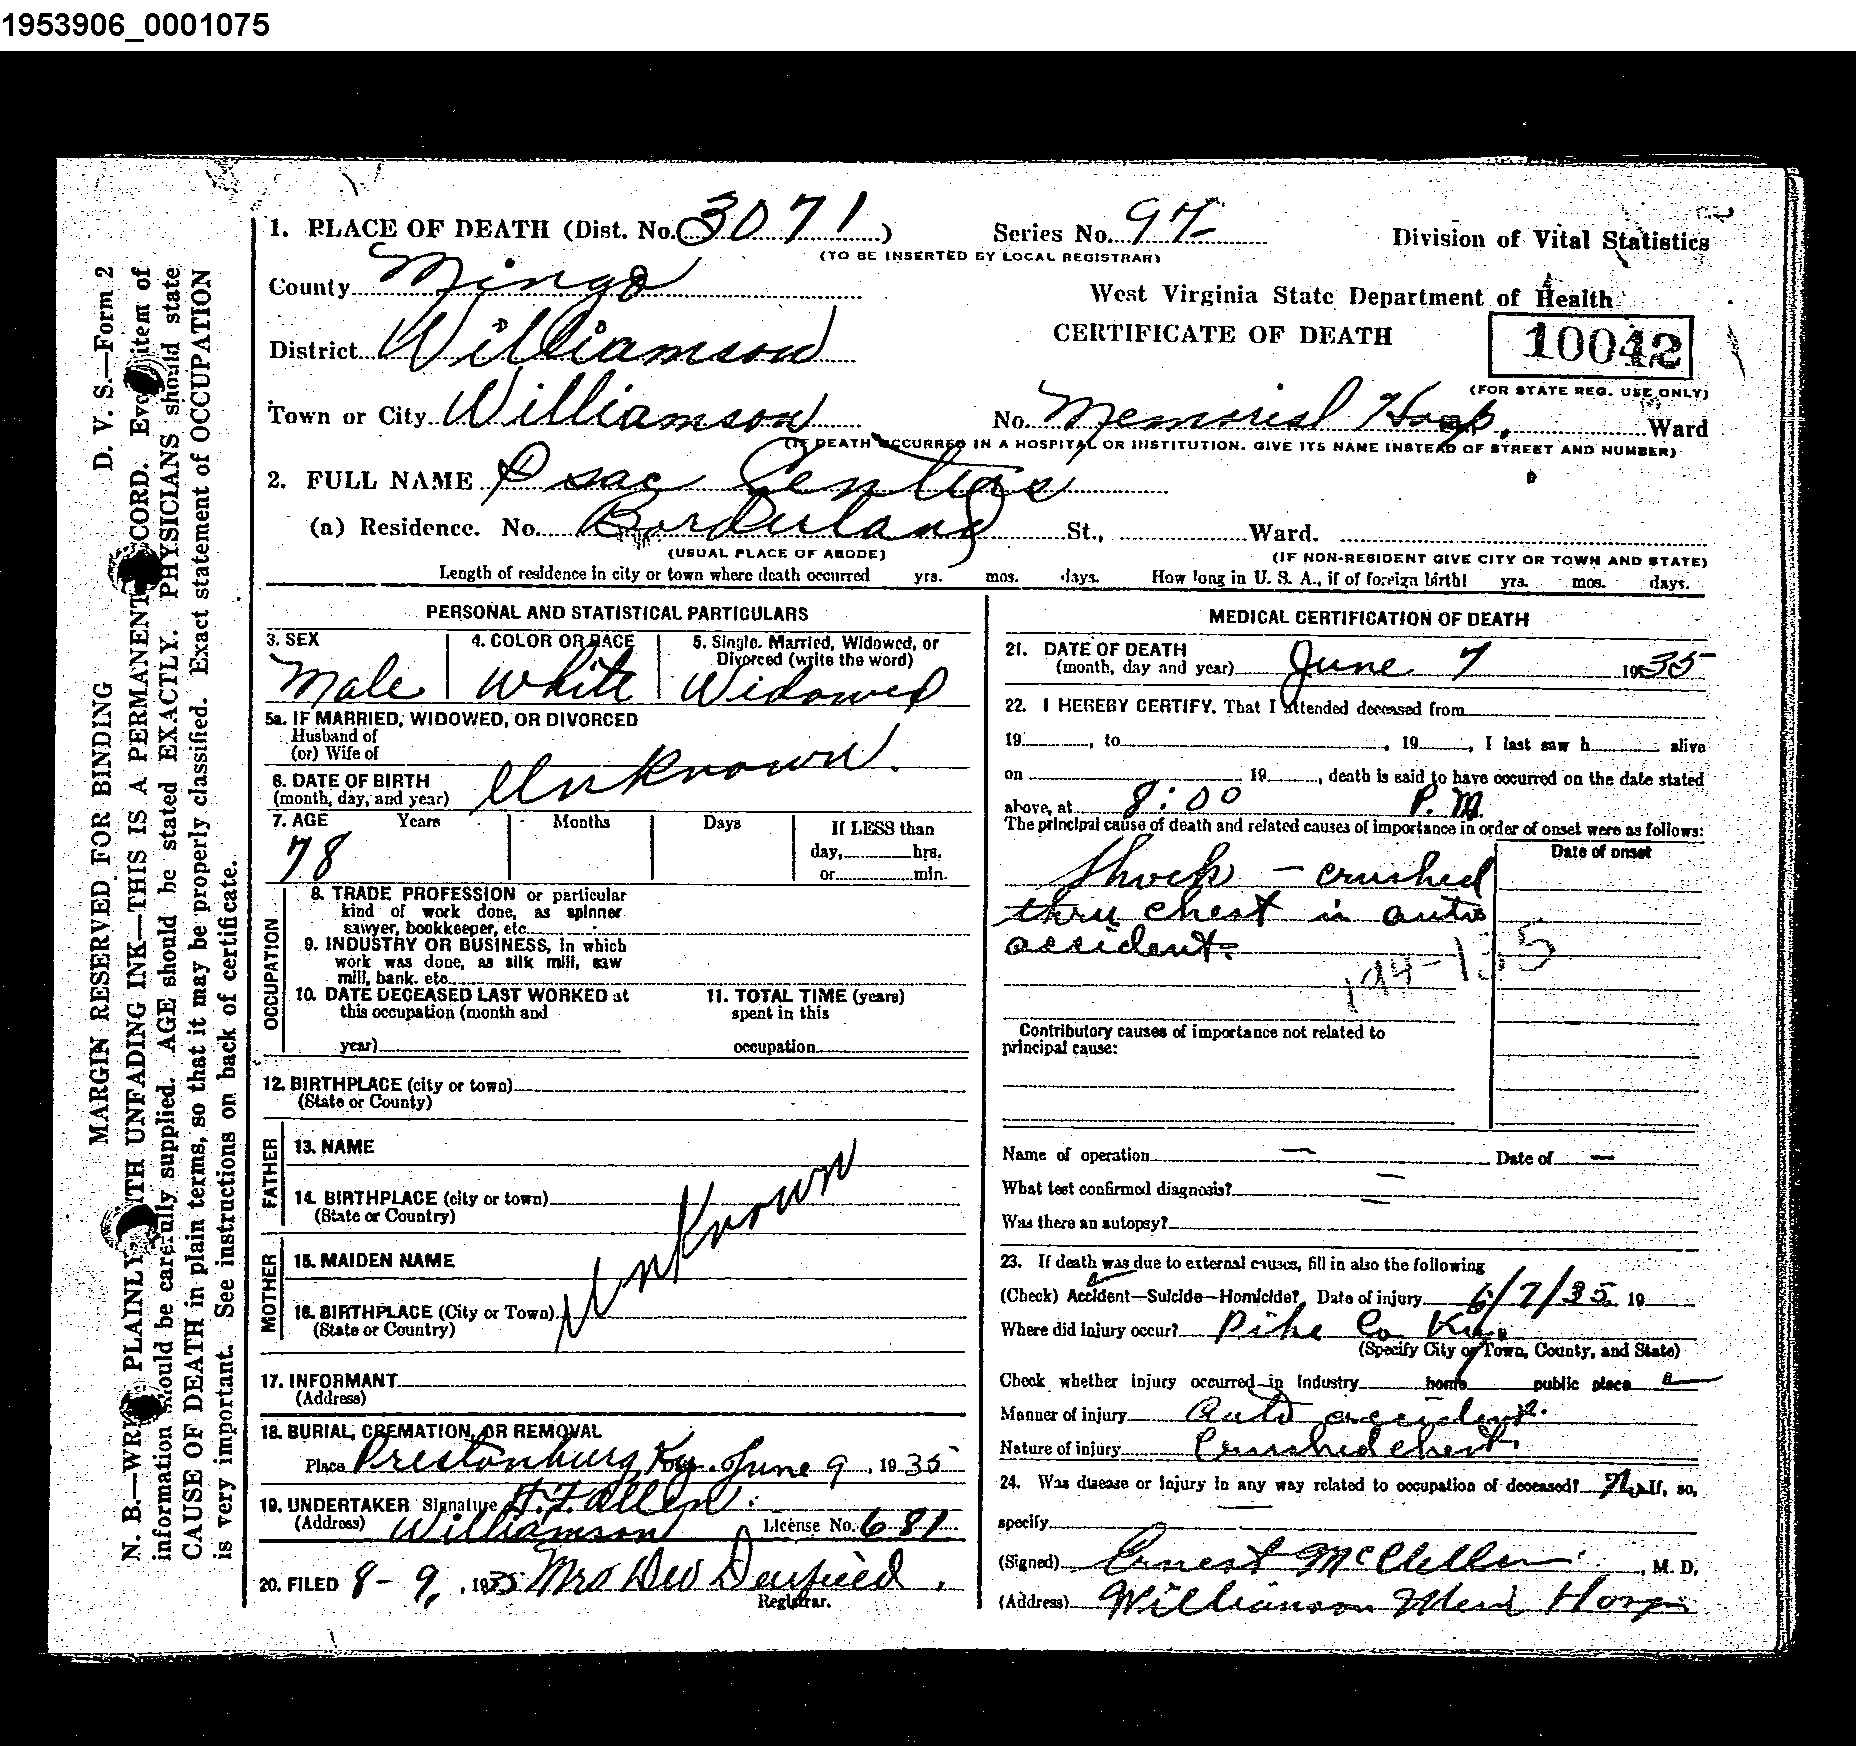 1953906_0001075
1. PLACE OF DEATH (Dist. No. 3071) Series No. 97 Division of Vital Statistics
(TO BE INSERTED BY LOCAL REGISTRAR)
County Mingo West Virginia State Department of Health
District Williamson CERTIFICATE OF DEATH 10042
(FOR STATE REG. USE ONLY)
Town or City Williamson No. Memorial Hosp. Ward
(IF DEATH OCCURRED IN A HOSPITAL OR INSTITUTION, GIVE ITS NAME INSTEAD OF STREET AND NUMBER)
2. FULL NAME Isac
(a) Residence. No. Borderland St., Ward.
(USUAL PLACE OF ABODE) (IF NON-RESIDENT GIVE CITY OR TOWN AND STATE)
Length of residence in city or town where death occurred yrs. mos. days. How long in U. S. A., if of foreign birth? yrs. mos. days.
PERSONAL AND STATISTICAL PARTICULARS
3. SEX 4. COLOR OR RACE 5. Single, Married, Widowed, or
Divorced (write the word)
Male White Widowed
5a. IF MARRIED, WIDOWED, OR DIVORCED
Husband of
(or) Wife of
6. DATE OF BIRTH
(month, day, and year) Unknown.
7. AGE Years Months Days If LESS than
78 day, hrs.
or min.
OCCUPATION
8. TRADE PROFESSION or particular
kind of work done, as spinner
sawyer, bookkeeper, etc.
9. INDUSTRY OR BUSINESS, in which
work was done, as silk mill, saw
mill, bank, etc.
10. DATE DECEASED LAST WORKED at 11. TOTAL TIME (years)
this occupation (month and spent in this
year) occupation
12. BIRTHPLACE (city or town)
(State or County)
FATHER
13. NAME
14. BIRTHPLACE (city or town)
(State or Country)
Unknown
MOTHER
15. MAIDEN NAME
16. BIRTHPLACE (City or Town)
(State or Country)
17. INFORMANT
(Address)
18. BURIAL, CREMATION, OR REMOVAL
Place Prestonburg Ky. June 9, 1935
19. UNDERTAKER Signature Allen
(Address) Williamson License No. 681
20. FILED 8-9, 1935 Mrs
Registrar.
MEDICAL CERTIFICATION OF DEATH
21. DATE OF DEATH
(month, day and year) June 7 1935
22. I HEREBY CERTIFY, That I attended deceased from
19 , to , 19 , I last saw h alive
on 19 , death is said to have occurred on the date stated
above, at 8:00 P.M.
The principal cause of death and related causes of importance in order of onset were as follows:
Date of onset
Shock - crushed
thru chest in auto
accident.
Contributory causes of importance not related to
principal cause:
Name of operation — Date of —
What test confirmed diagnosis? —
Was there an autopsy? —
23. If death was due to external causes, fill in also the following
(Check) Accident—Suicide—Homicide? Date of injury 6/7/35 19
Where did injury occur? Pike Co Ky.
(Specify City or Town, County, and State)
Check whether injury occurred in Industry home public place
Manner of injury Auto accident.
Nature of injury Crushed chest.
24. Was disease or injury in any way related to occupation of deceased? No If, so,
specify
(Signed) Ernest McClellan, M. D.
(Address) Williamson Mem Hosp
D. V. S.—Form 2
MARGIN RESERVED FOR BINDING
N. B.—WRITE PLAINLY WITH UNFADING INK—THIS IS A PERMANENT RECORD. Every item of
information should be carefully supplied. AGE should be stated EXACTLY. PHYSICIANS should state
CAUSE OF DEATH in plain terms, so that it may be properly classified. Exact statement of OCCUPATION
is very important. See instructions on back of certificate.